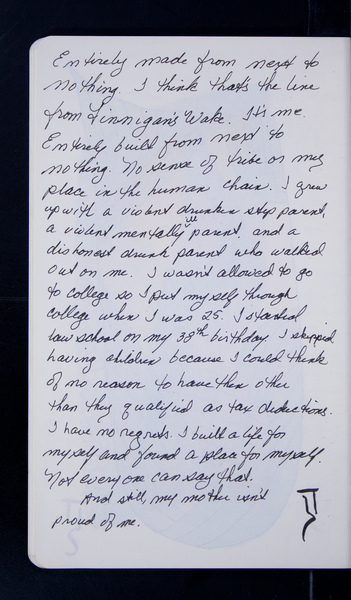 Entirely made from next to
nothing. I think that's the line
from Finnigan's Wake. It's me.
Entirely built from next to
nothing. No sense of tribe or my
place in the human chain. I grew
up with a violent drunken step parent,
a violent mentally ill parent and a
dishonest drunk parent who walked
out on me. I wasn't allowed to go
to college so I put myself through
college when I was 25. I started
law school on my 38th birthday. I skipped
having children because I could think
of no reason to have them other
than they qualified as tax deductions.
I have no regrets. I built a life for
myself and found a place for myself.
Not everyone can say that.
And still, my mother isn't
proud of me.